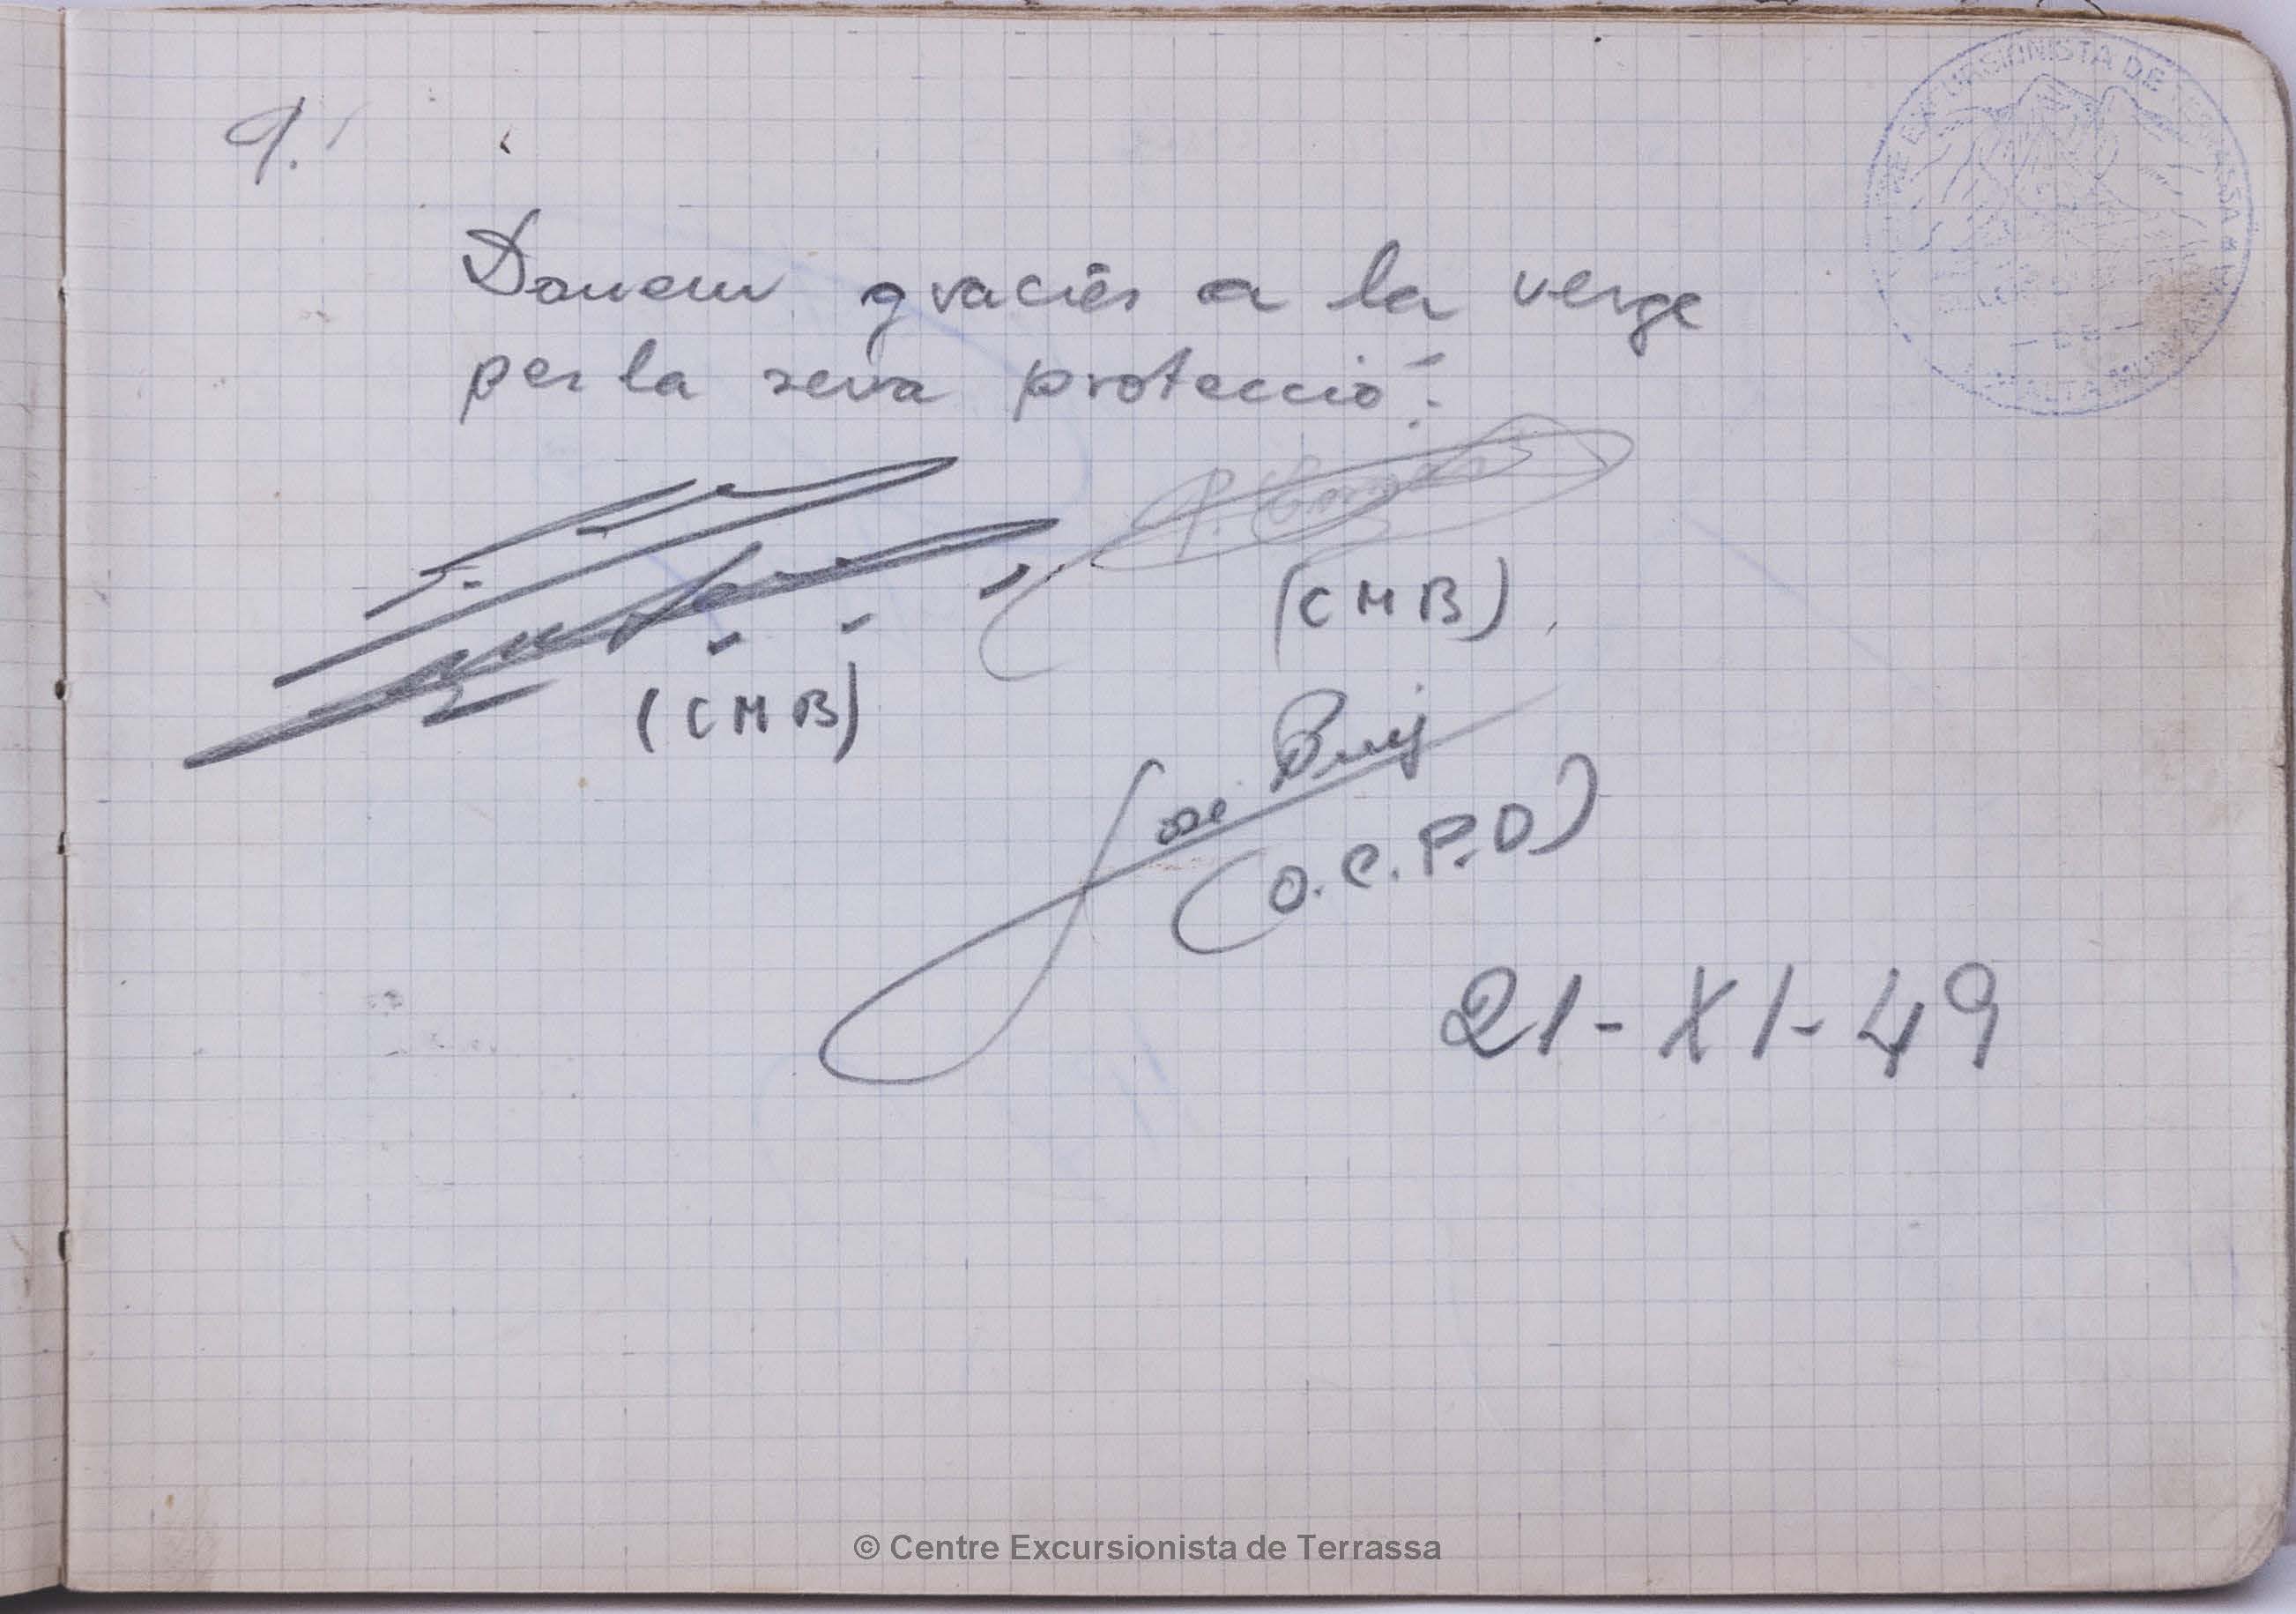 9.
Donem graciés a la verge
per la seva protecció.
(CMB)
(CMB)
José Puig
(O.C.P.D)
21-XI-49
EXCURSIONISTA DE TERRASSA
D'ALTA MUNTANYA
© Centre Excursionista de Terrassa